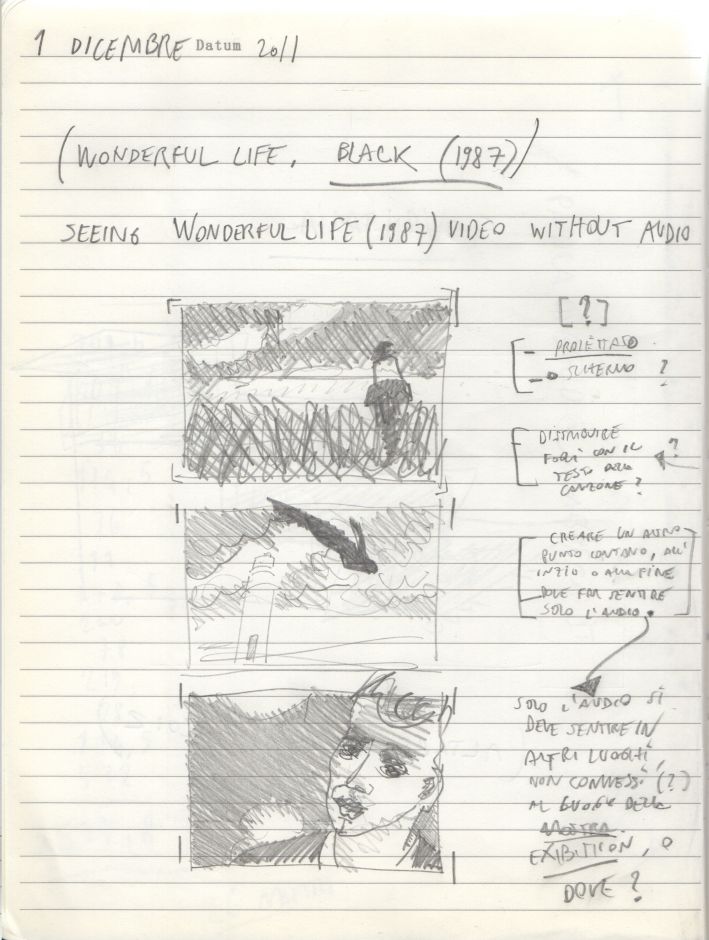 1 DICEMBRE Datum 2011
(WONDERFUL LIFE, BLACK (1987))
SEEING WONDERFUL LIFE (1987) VIDEO WITHOUT AUDIO
[?]
- PROIETTATO
- SCHERMO ?
DISTRIBUIRE
FOGLI CON IL
TESTO DELLA
CANZONE ?
?
CREARE UN ALTRO
PUNTO LONTANO, ALL'
INIZIO O ALLA FINE
DOVE FAR SENTIRE
SOLO L'AUDIO.
SOLO L'AUDIO SI
DEVE SENTIRE IN
ALTRI LUOGHI,
NON CONNESSI (?)
AL LUOGO DELLA
MOSTRA
EXIBITION, O
DOVE ?